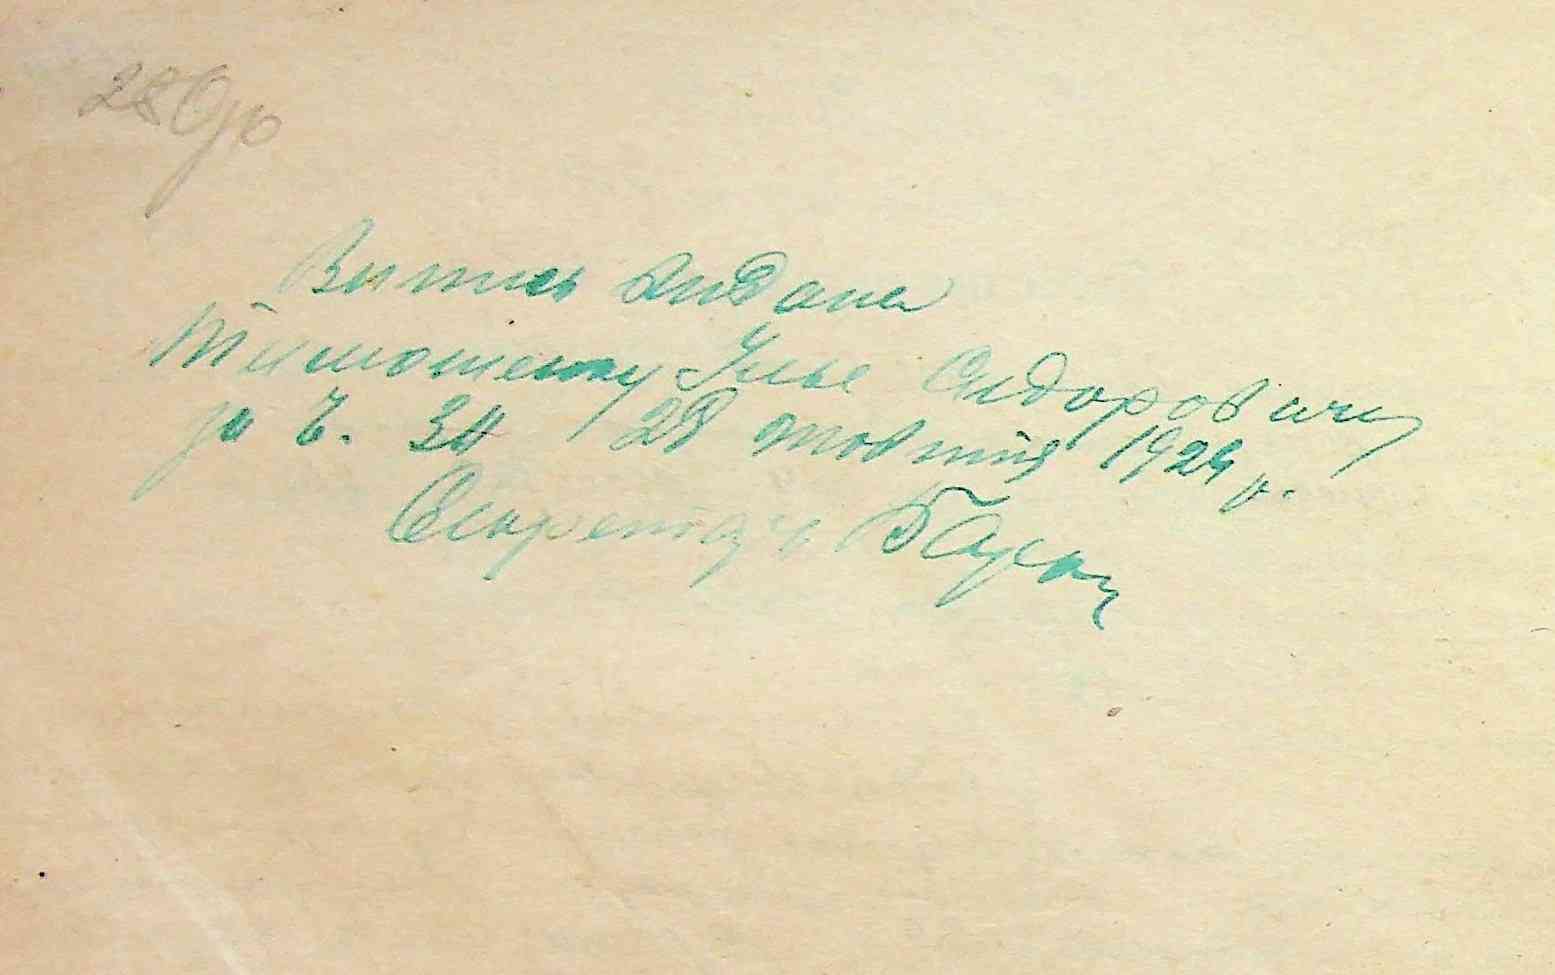 280
Витяг видана
Тимошенку Улье Сидоровичу
за Ч. 34 28 жовтня 1924 р.
Секретар